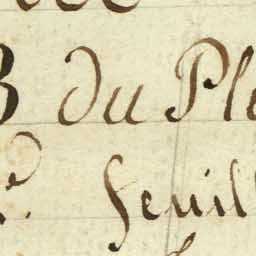 B du Ple
feuil